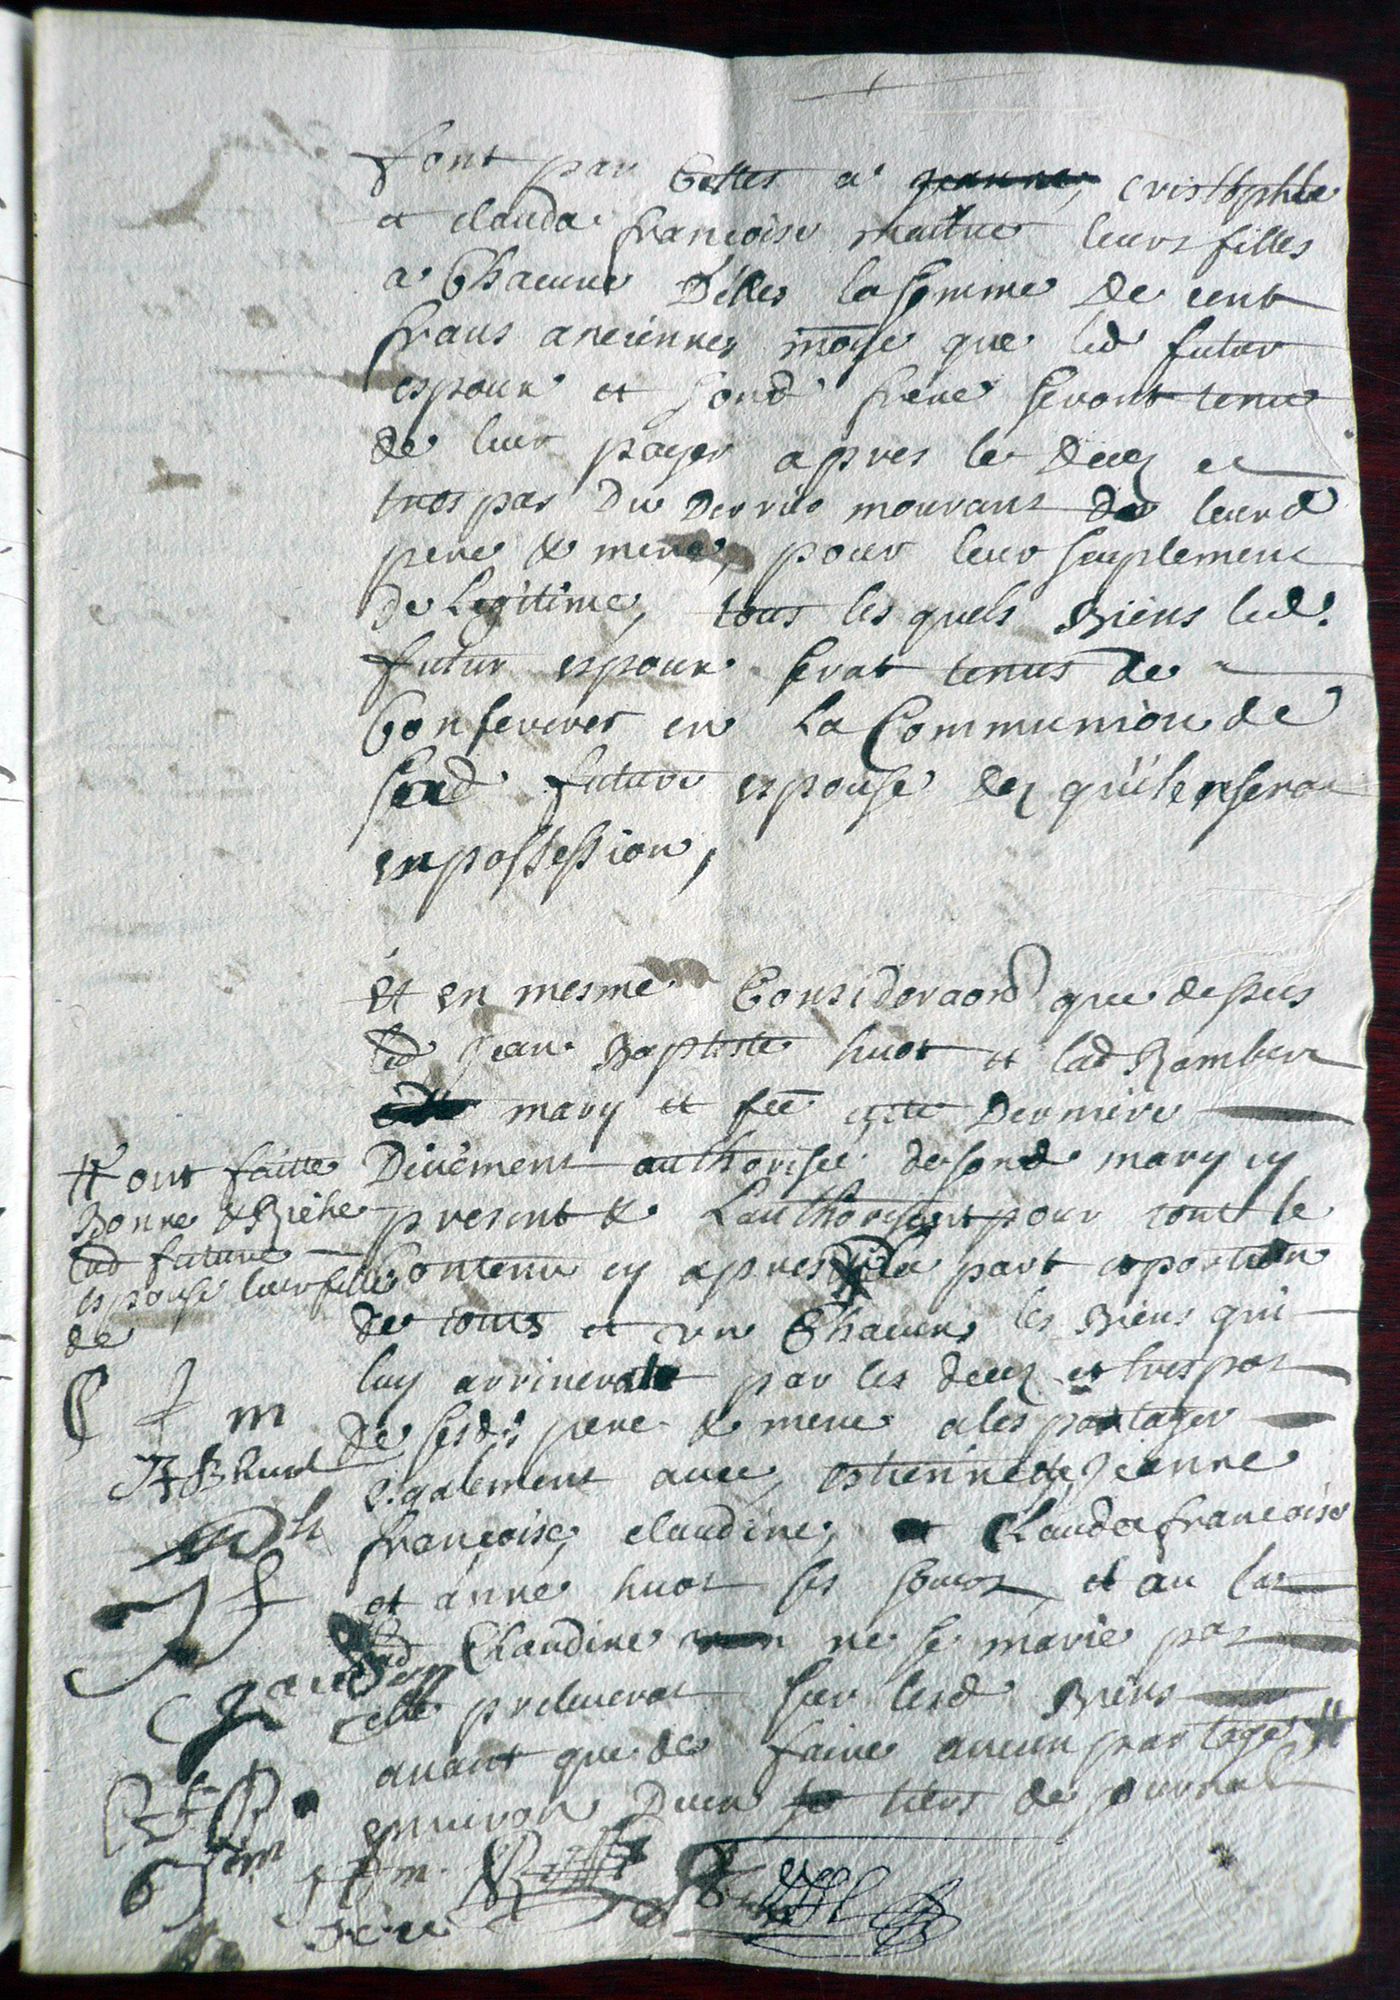 font par Celles a Jeanne, cristophla
et clauda françoise maitre leurs filles
a Chacune D'elles la somme de cent
frans anciennes mo͞ye que led futur
espoux et sond frere seront tenu
de leur payer apres le decez et
trespas du dernier mourant de leurd
pere & mere, pour leur suplement
de Legitime, tous les quels Biens led.
futur espoux serat tenus de
Conferer en La Communion de
sad future espouse dez qu'il en serat
en possession,
Et en mesme Consideraõn que dessus
led Jean Baptiste huot et lad Rambert
mary et fe͞e cette derniere
Duëment authorisée de sond mary cy
present & L'authorisant pour tout le
Contenu cy apres # la part et portion
de tous et un Chacuns les Biens qui
luy arriverat par les decez et trespas
de sesd. pere & mere a les partager
egalement avec, estiennette, Jeanne
françoise, claudine, et Clauda françoise
et anne huot ses soeurs, et au cas
lad Claudine ne se marie pas
elle prelevera sur lesd Biens
avant que de faire aucun partage #
environ d'un tiers de journal
# ont faitte
Bonne & Riche
lad future
espouse leur fille
de
C J m
J B huot